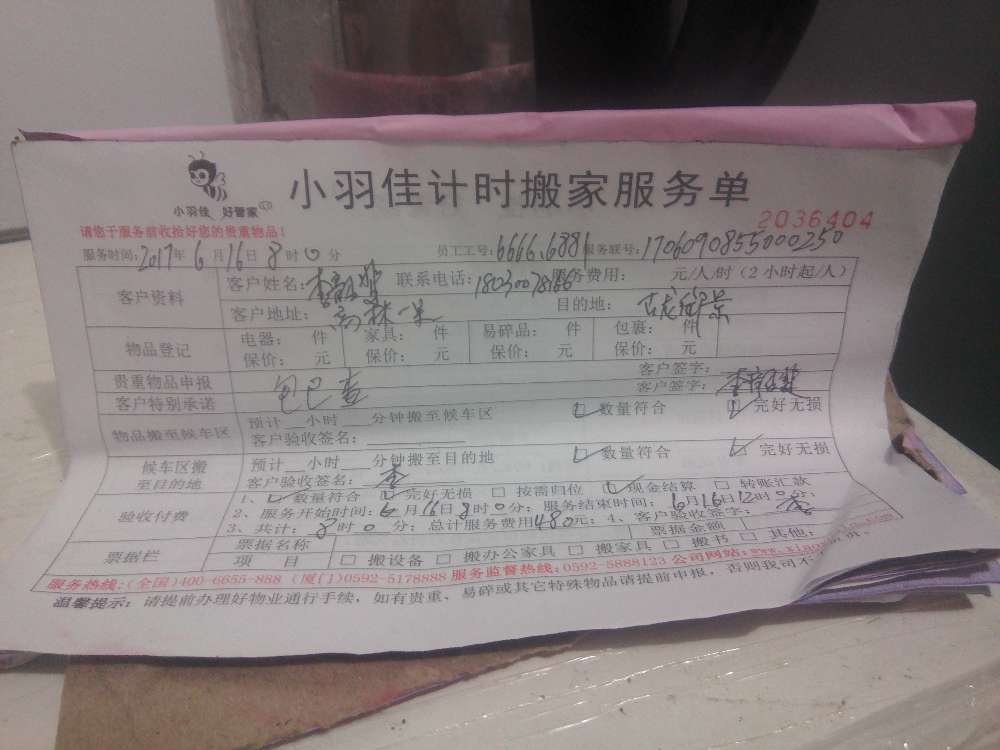 小羽佳 好管家
小羽佳计时搬家服务单
2036404
请您于服务前收拾好您的贵重物品!
服务时间:2017年6月16日8时0分 员工工号:6666,6881 服务联号:1706090855000250
客户资料 客户姓名:李 联系电话:18030078166 服务费用: 元/人/时(2小时起/人)
客户地址:高林一 目的地:古龙御景
物品登记 电器: 件 家具: 件 易碎品: 件 包裹: 件
保价: 元 保价: 元 保价: 元 保价: 元
贵重物品申报 客户签字:
客户特别承诺 包已查 客户签字:李
物品搬至候车区 预计__小时__分钟搬至候车区 ☑数量符合 ☑完好无损
客户验收签名:
候车区搬至目的地 预计__小时__分钟搬至目的地 ☑数量符合 ☑完好无损
客户验收签名:李
验收付费 1、☑数量符合 ☑完好无损 □按需归位 ☑现金结算 □转账汇款
2、服务开始时间:6月16日8时0分;服务结束时间:6月16日12时0分;
3、共计:8时0分;总计服务费用480元;4、客户验收签字:李
票据栏 票据名称 票据金额
项 目 □搬设备 □搬办公家具 □搬家具 □搬书 □其他:
服务热线:(全国)400-6655-888 (厦门)0592-5178888 服务监督热线:0592-5888123 公司网站:
温馨提示:请提前办理好物业通行手续,如有贵重、易碎或其它特殊物品请提前申报,否则我司不